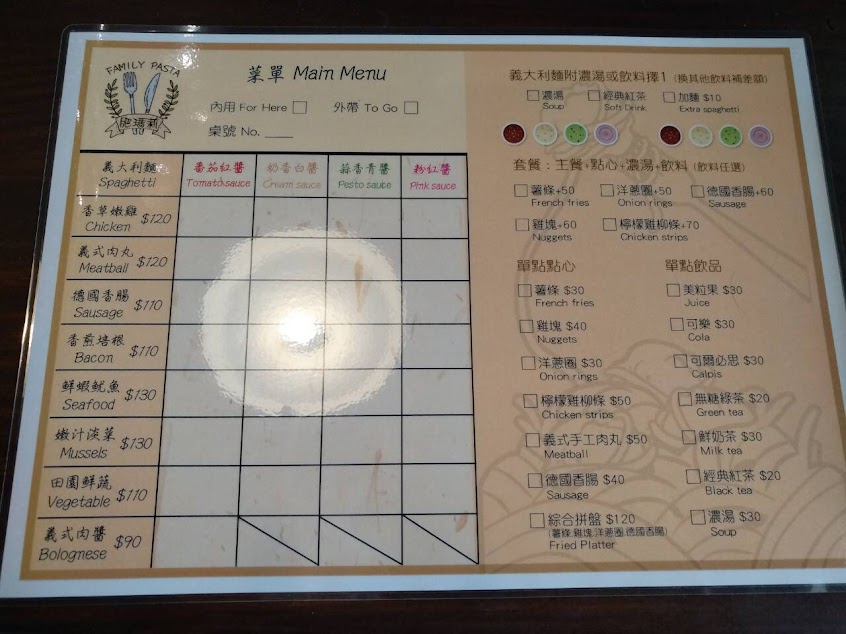 FAMILY PASTA
施瑪莉
菜單 Main Menu
內用 For Here
外帶 To Go
桌號 No.
義大利麵
Spaghetti
番茄紅醬
Tomato sauce
奶香白醬
Cream sauce
蒜香青醬
Pesto sauce
粉紅醬
Pink sauce
香草嫩雞
Chicken $120
義式肉丸
Meatball $120
德國香腸
Sausage $110
香煎培根
Bacon $110
鮮蝦魷魚
Seafood $130
嫩汁淡菜
Mussels $130
田園鮮蔬
Vegetable $110
義式肉醬
Bolognese $90
義大利麵附濃湯或飲料擇1 (換其他飲料補差額)
濃湯
Soup
經典紅茶
Soft Drink
加麵 $10
Extra spaghetti
套餐：主餐+點心+濃湯+飲料 (飲料任選)
薯條+50
French fries
洋蔥圈+50
Onion rings
德國香腸+60
Sausage
雞塊+60
Nuggets
檸檬雞柳條+70
Chicken strips
單點點心
薯條 $30
French fries
雞塊 $40
Nuggets
洋蔥圈 $30
Onion rings
檸檬雞柳條 $50
Chicken strips
義式手工肉丸 $50
Meatball
德國香腸 $40
Sausage
綜合拼盤 $120
(薯條.雞塊.洋蔥圈.德國香腸)
Fried Platter
單點飲品
美粒果 $30
Juice
可樂 $30
Cola
可爾必思 $30
Calpis
無糖綠茶 $20
Green tea
鮮奶茶 $30
Milk tea
經典紅茶 $20
Black tea
濃湯 $30
Soup